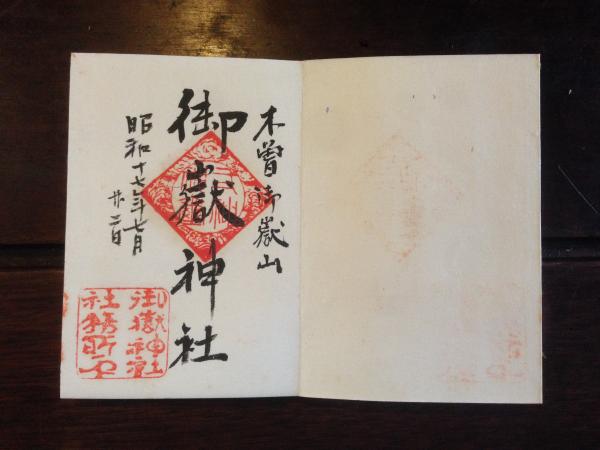 木曽御嶽山
御嶽神社
昭和十七年七月
廿二日
御嶽神社
社務所